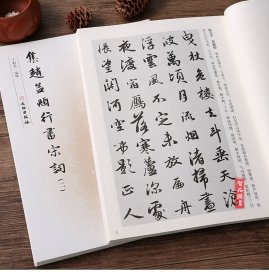 集趙孟頫行書宋詞（一）
曳杖危樓去斗垂天滄
波萬頃月流煙渚掃盡
浮雲風不定未放扁舟
夜渡宿鴈落寒蘆深處
悵望關河空弔影正人